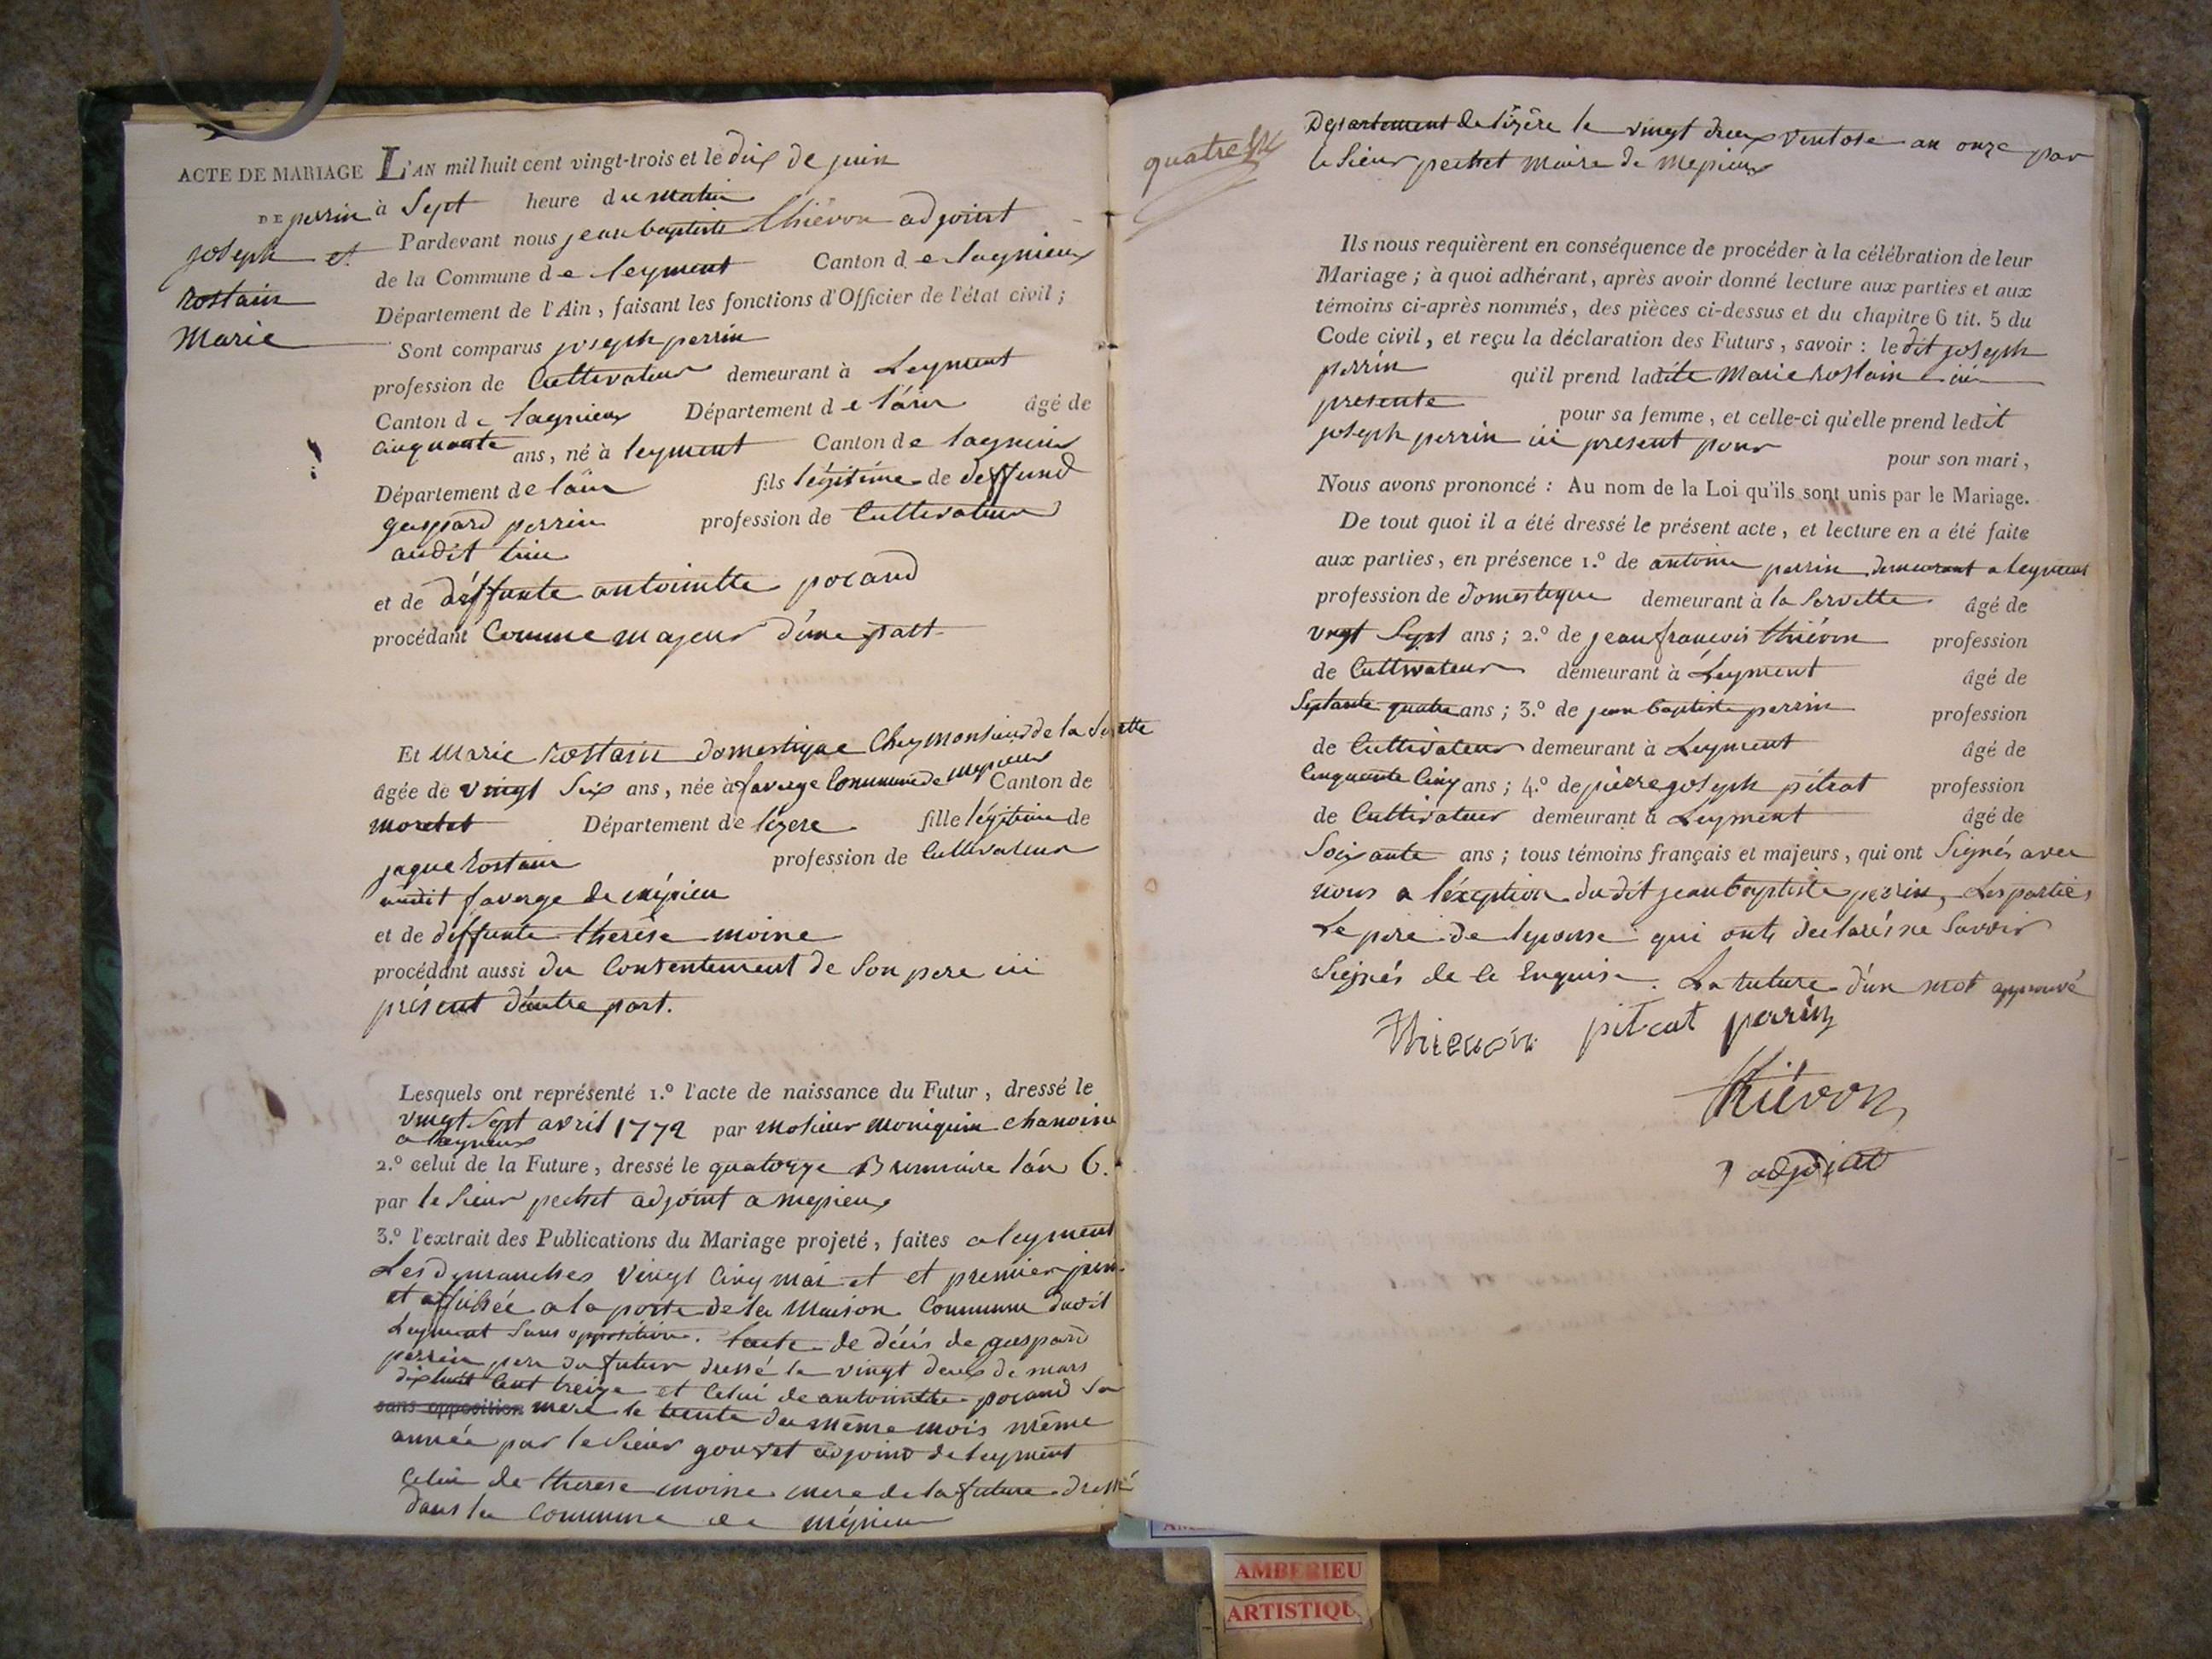 ACTE DE MARIAGE
DE perrin
joseph et
rostain
Marie
L'AN mil huit cent vingt-trois et le dix de juin
à Sept heure du matin
Pardevant nous jean baptiste thiévon adjoint
de la Commune de leyment Canton de lagnieux
Département de l'Ain, faisant les fonctions d'Officier de l'état civil;
Sont comparus joseph perrin
profession de Cultivateur demeurant à Leyment
Canton de lagnieux Département de l'ain âgé de
cinquante ans, né à leyment Canton de lagnieu
Département de l'ain fils légitime de deffund
gaspard perrin profession de Cultivateur
audit lieu
et de déffunte antoinette pocand
procédant Comme majeur d'une part
Et Marie rostain domestique Chez monsieur de la Servette
âgée de vingt Six ans, née à faverge Commune de mepieux Canton de
moretet Département de lizere fille légitime de
jaque rostain profession de Cultivateur
audit faverge de mépieu
et de déffunte therèse moine
procédant aussi du Consentement de Son pere ici
présent d'autre part.
Lesquels ont représenté 1.º l'acte de naissance du Futur, dressé le
vingt Sept avril 1772 par mosieur moniquin chanoine
a leymens
2.º celui de la Future, dressé le quatorze Brumaire l'an 6.
par le Sieur pechet adjoint a mepieux
3.º l'extrait des Publications du Mariage projeté, faites a leyment
Les dimanches vingt Cinq mai et et premier juin
et affichée a la porte de la Maison Commune dudit
Leyment Sans opposition. l'acte de décès de gaspard
perrin pere du futur dressé le vingt deux de mars
dix huit Cent treize et Celui de antoinette pocand Sa
sans opposition mere le trente du même mois même
année par le Sieur gouvet adjoint de leyment
Celui de therese moine mere de la future dressé
dans la Commune de mépieu
quatre
Departement de lizère le vingt deux ventose an onze par
le Sieur pechet Maire de Mepieux
Ils nous requièrent en conséquence de procéder à la célébration de leur
Mariage; à quoi adhérant, après avoir donné lecture aux parties et aux
témoins ci-après nommés, des pièces ci-dessus et du chapitre 6 tit. 5 du
Code civil, et reçu la déclaration des Futurs, savoir: le dit joseph
perrin qu'il prend ladite Marie rostain ici
presente pour sa femme, et celle-ci qu'elle prend ledit
joseph perrin ici present pour pour son mari,
Nous avons prononcé: Au nom de la Loi qu'ils sont unis par le Mariage.
De tout quoi il a été dressé le présent acte, et lecture en a été faite
aux parties, en présence 1.º de antoine perrin demeurant a leyment
profession de domestique demeurant à la Servette âgé de
vingt Sept ans; 2.º de jean françois thiévon profession
de Cultivateur demeurant à Leyment âgé de
Septante quatre ans; 3.º de jean baptiste perrin profession
de Cultivateur demeurant à Leyment âgé de
Cinquante Cinq ans; 4.º de pierre joseph pitrat profession
de Cultivateur demeurant à Leyment âgé de
Soixante ans; tous témoins français et majeurs, qui ont Signés avec
nous a l'éxeption du dit jean baptiste perrin, Les parties
Le pere de lepouse qui ont declaré ne Savoir
Signés de ce Enquis. La rature d'un mot approuvé
Thievon pitrat perrin
thiévon
adjoint
AMBERIEU
ARTISTIQU